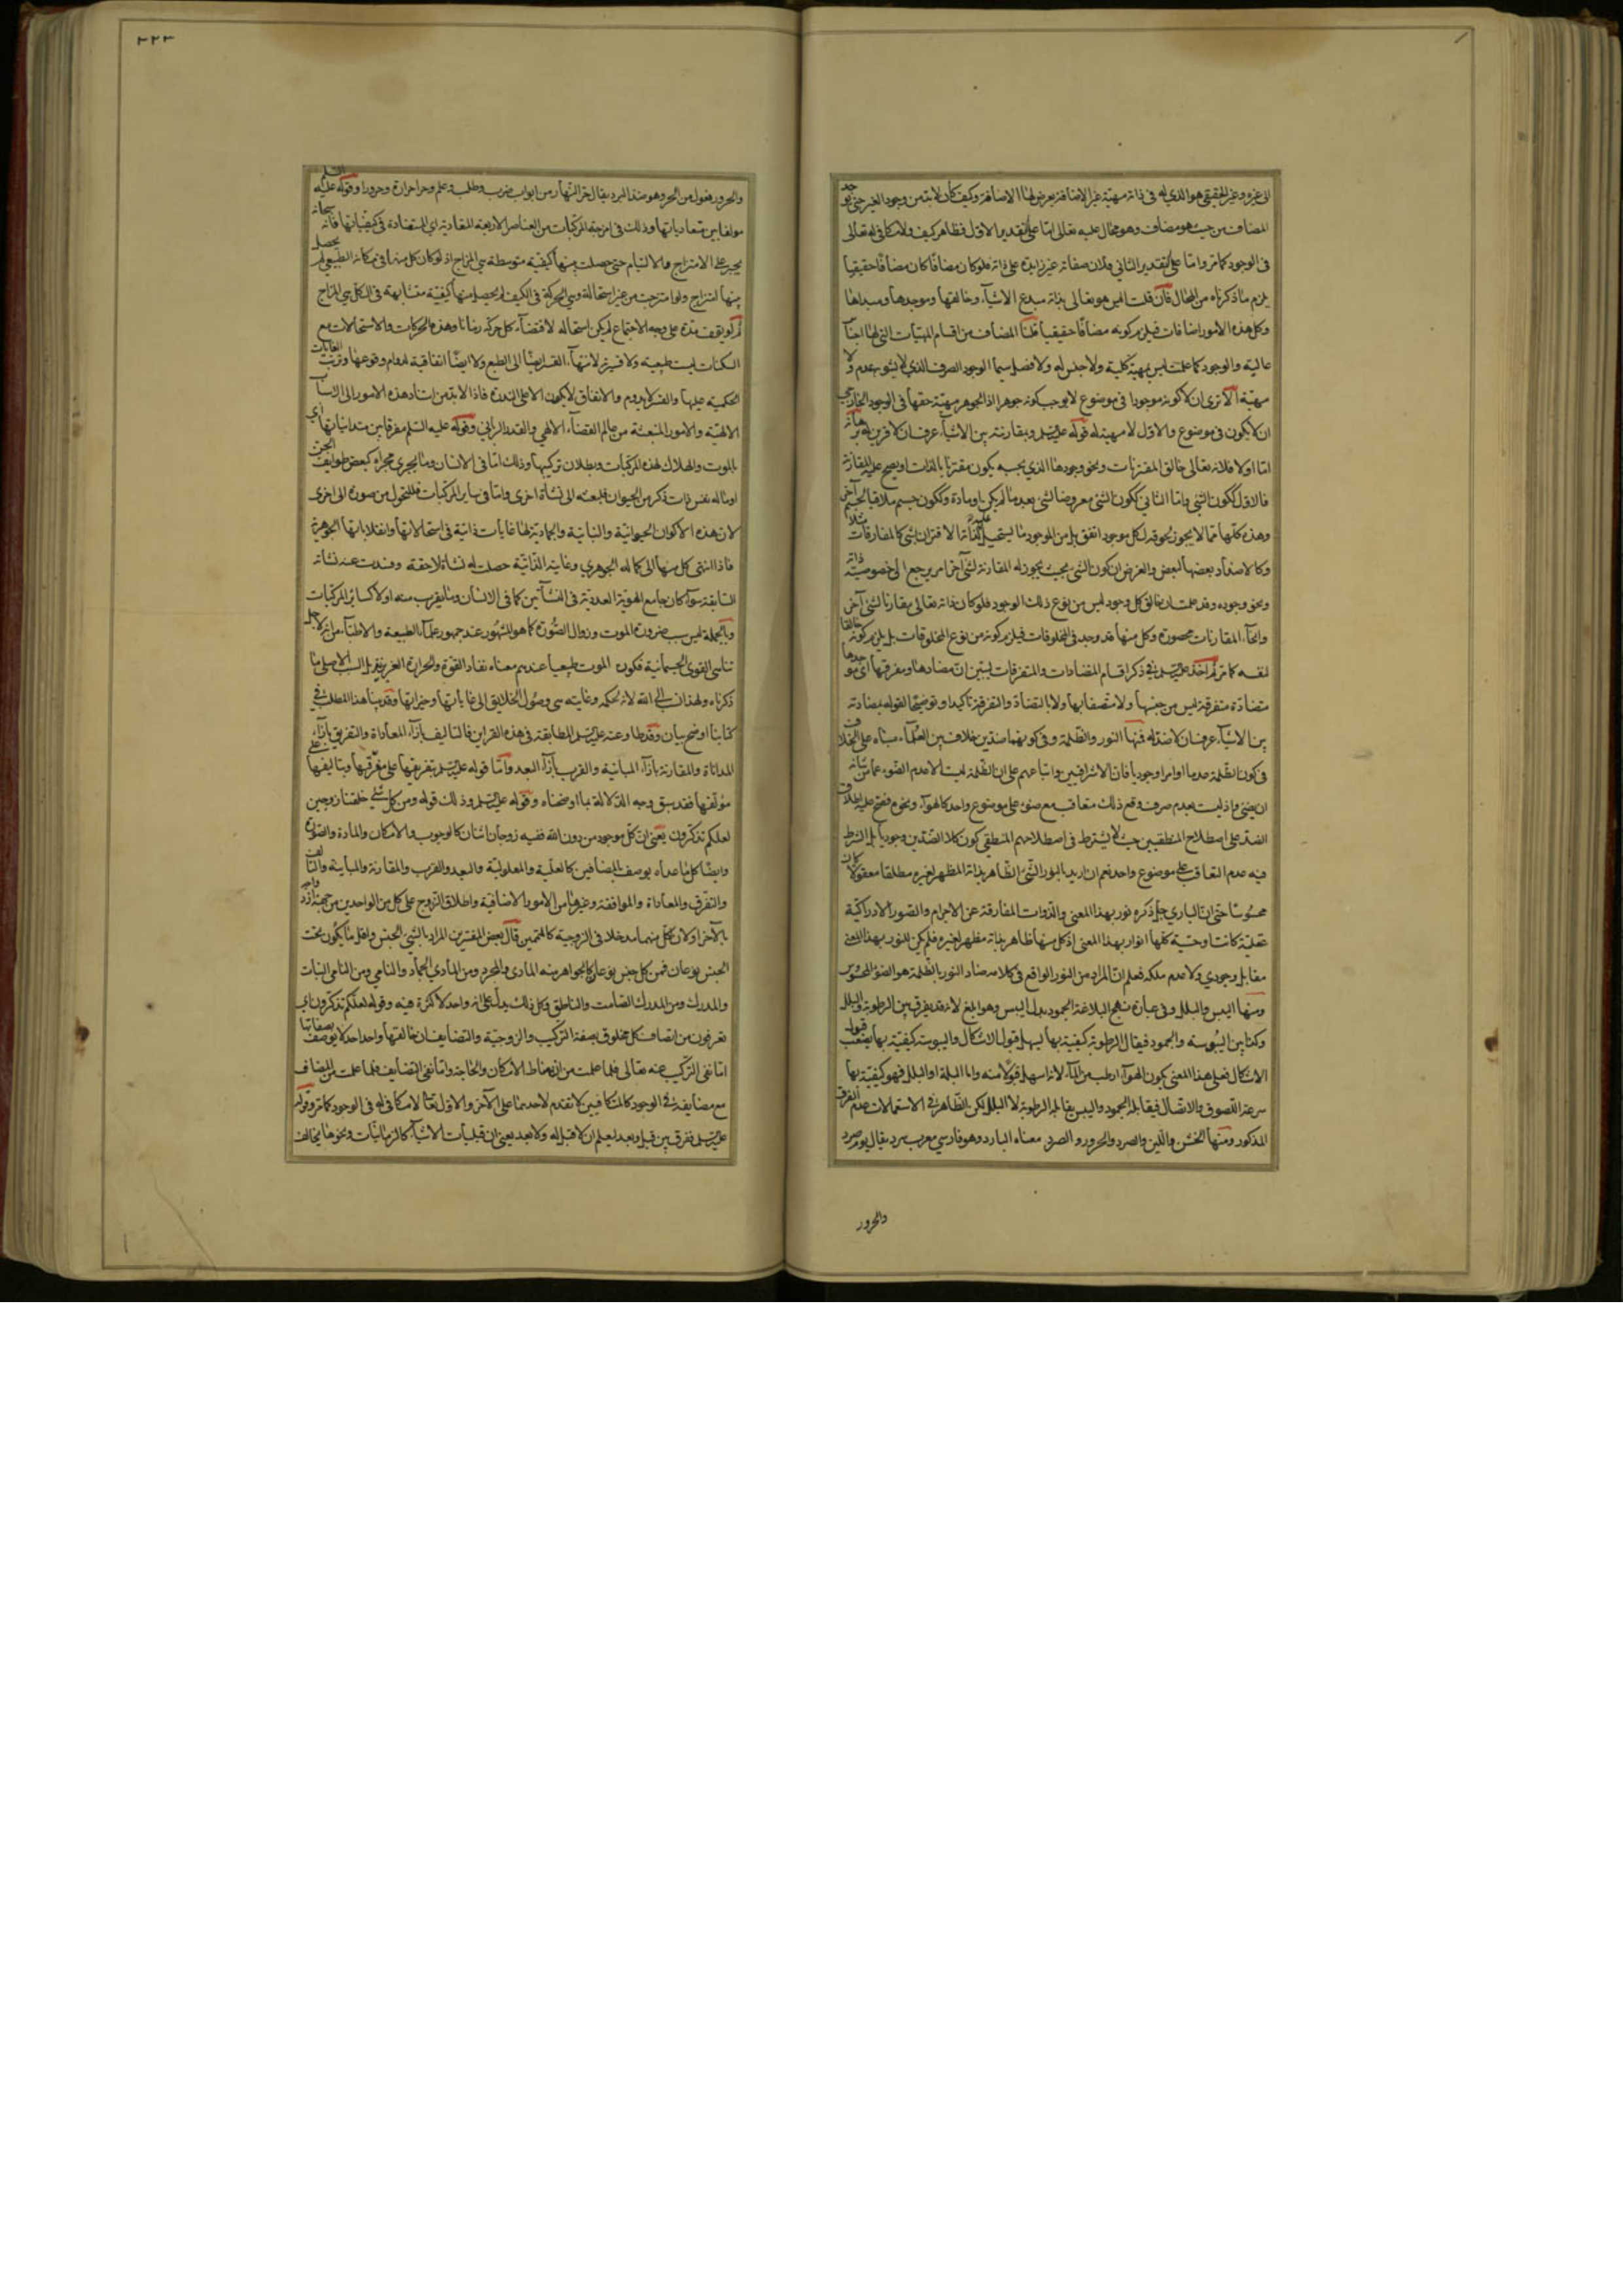 الى غيره وغير الحقيقي هو الذي له في ذاته مهية غير الاضافة يعرض لها الاضافة وكيف كان لا بد من وجود الغير حتى يوجد
المضاف من حيث هو مضاف وهو محال عليه تعالى اما على التقدير الاول فظاهر كيف ولا مكافي له تعالى
في الوجود كما مر واما على التقدير الثاني فلان صفاته غير زايدة على ذاته فلو كان مضافا كان مضافا حقيقيا
يلزم ما ذكرناه من المحال فان قلت اليس هو تعالى بذاته مبدع الاشياء وخالقها وموجدها ومبداها
وكل هذه الامور اضافات فيلزم كونه مضافا حقيقيا قلنا المضاف من اقسام المهيات التي لها اجناس
عالية والوجود كما علمت ليس بمهية كلية ولا جنس له ولا فصل سيما الوجود الصرف الذي لا يشوبه عدم ولا
مهية الا ترى ان كونه موجودا في موضوع لا يوجب كونه جوهرا اذ الجوهر مهية حقها في الوجود الخارجي
ان لا يكون في موضوع والاول لا مهية له قوله عليه السلم وبمقارنته بين الاشياء عرف ان لا قرين له برهانه
اما اولا فلانه تعالى خالق المقترنات ونحو وجودها الذي بحسبه يكون مقترنا بالذات او يصح عليه المقارنة
فالاول ككون الشي واما الثاني ككون الشي معروضا لشي بعدما لم يكن او مادة وككون جسم ملاقيا لجسم آخر
وهذه كلها مما لا يجوز لحوقه لكل موجود اتفق بل من الموجود ما يستحيل عليه لذاته الاقتران بشي كالمفارقات مثلا
وكالاضداد بعضها لبعض والغرض ان كون الشي بحيث يجوز له المقارنة لشي آخر امر يرجع الى خصوصية ذاته
ونحو وجوده وقد علمت ان خالق كل وجود ليس من نوع ذلك الوجود فلو كان ذاته تعالى مقارنا لشي آخر
وانحاء المقارنات محصورة وكل منها قد وجد في المخلوقات فيلزم كونه من نوع المخلوقات بل يلزم كونه خالقا
لنفسه كما مر ثم اخذ عليه السلم في ذكر اقسام المتضادات والمتفرقات ليتبين ان مضادها ومفرقها اي موجدها
متضادة متفرقة ليس من جنسها ولا متصفا بها ولا بالتضاد والتفرقة تاكيدا وتوضيحا لقوله بمضادته
بين الاشياء عرف ان لا ضد له فمنها النور والظلمة وفي كونهما ضدين خلاف بين العلماء مبناه على الخلاف
في كون الظلمة عدميا او امرا وجوديا فان الاشراقيين واتباعهم على ان الظلمة ليست الا عدم الضوء عما من شانه
ان يضيء واذ ليست بعدم صرف وقع ذلك متعاقب مع ضوء على موضوع واحد كالهواء ونحوه فصح عليه اطلاق
الضد على اصطلاح المنطقيين حيث لا يشترط في اصطلاحهم المنطقي كون كلا الضدين وجوديا بل الشرط
فيه عدم التعاقب على موضوع واحد نعم ان اريد بالنور الشي الظاهر بذاته المظهر لغيره مطلقا معقولا كان
محسوسا حتى ان الباري جل ذكره نور بهذا المعنى والذوات المفارقة عن الاجرام والصور الادراكية
عقلية كانت او حسية كلها انوار بهذا المعنى اذ كل منها ظاهر بذاته مظهر لغيره فلم يكن للنور بهذا المعنى
مقابل وجودي ولا عدم ملكه فعلم ان المراد من النور الواقع في كلامه مضاد النور بالظلمة هو الضوء المحسوس
ومنها اليبس والبلل وفي عبارة نهج البلاغة الجمود بدل اليبس وهو ابلغ لانه قد يفرق بين الرطوبة والبلل
وكذا بين اليبوسة والجمود فيقال الرطوبة كيفية بها يسهل قبول الاشكال واليبوسة كيفية بها يصعب قبول
الاشكال فعلى هذا المعنى يكون الهواء ارطب من الماء لانه اسهل قبولا منه واما البلة او البلل فهو كيفية بها
سرعة اللصوق والاتصال فيقابله الجمود واليبس يقابله الرطوبة لا البلل لكن الظاهر في الاستعمالات عدم الفرق
المذكور ومنها الخشن واللين والصرد والحرور والصرد معناه البارد وهو فارسي معرب سرد يقال يوم صرد
والحرور
٣٢٣
والحرور فعول من الحر وهو ضد البرد يقال حر النهار من ابواب ضرب وطلب وعلم وحر احرارة وحرورا وقوله عليه السلم
مولفا بين متعادياتها وذلك في امزجة المركبات من العناصر الاربعة المتعادية اي المتضادة في كيفياتها فانه سبحانه
يجبر على الامتزاج والالتيام حتى حصلت منها كيفية متوسطة هي المزاج اذ لو كان كل منها في مكانه الطبيعي لم يحصل
منها امتزاج ولو امتزجت من غير استحالة وهي الحركة في الكيف لم يحصل منها كيفية متشابهة في الكل هي المزاج
ثم لو لم يقف مدة على وجه الاجتماع لم يكن استحاله لاقتضاء كل حركة زمانا وهذه الحركات والاستحالات مع
السكنات ليست طبيعية ولا قسرية لانتهاء القسر ايضا الى الطبع ولا ايضا اتفاقية لدوام وقوعها وترتب الغايات
الحكمية عليها والقسر لا يدوم والاتفاق لا يكون الا على الندرة فاذا لا بد من استناد هذه الامور الى الاسباب
الالهية والامور المنبعثة من عالم القضاء الالهي والقدر الرباني وقوله عليه السلم مفرقا بين متدانياتها اي
بالموت والهلاك لهذه المركبات وبطلان تركيبها وذلك اما في الانسان وما يجري مجراه كبعض طوايف الجن
او ما له نفس ذات ذكر من الحيوان فلبعثه الى نشاة اخرى واما في ساير المركبات فللتحول من صورة الى اخرى
لان هذه الاكوان الحيوانية والنباتية والجمادية لها غايات ذاتية في استحالاتها وانقلاباتها الجوهرية
فاذا انتهى كل منها الى كماله الجوهري وغايته الذاتية حصلت له نشاة لاحقة وفسدت عنه نشاة
السابقة سواء كان جامع الهوية العددية في النشاتين كما في الانسان وما يقرب منه او لا كساير المركبات
وبالجملة ليس سبب ضرورة الموت وزوال الصورة كما هو المشهور عند جمهور علماء الطبيعة والاطباء من انه لاجل
تناهي القوى الجسمانية فيكون الموت طبيعيا عندهم معناه نفاد القوة والحرارة الغريزية بل السبب الاصلي ما
ذكرناه ولهذا نسب الى الله لانه بحكمه وغايته هي وصول الخلايق الى غاياتها وخيراتها وقد بينا هذا المطلب في
كتابنا اوضح بيان وقد طاوعته عليه السلم المطابقة في هذه القراين فالتاليف بازاء المعاداة والتفريق بازاء
المداناة والمقارنة بازاء المباينة والقرب بازاء البعد واما قوله عليه السلم بتفريقها على مفرقها وبتاليفها على
مؤلفها فقد سبق وجه الدلالة بما اوضحناه وقوله عليه السلم وذلك قوله ومن كل شي خلقنا زوجين
لعلكم تذكرون يعني ان كل موجود من دون الله ففيه زوجان اثنان كالوجوب والامكان والمادة والصورة
وايضا كل ما عداه يوصف بالمضافين كالعلية والمعلولية والبعد والقرب والمقارنة والمباينة والتالف
والتفرق والمعاداة والموافقة وغيرها من الامور الاضافية واطلاق الزوج على كل من الواحدين من جهة ازدواجه
بالآخر او لان لكل منهما مدخلا في الزوجية كالمتممين قال بعض المفسرين المراد بالشي الجنس واقل ما يكون تحت
الجنس نوعان فمن كل جنس نوعان كالجواهر منه المادي والمجرد ومن المادي الجماد والنامي ومن النامي النبات
والمدرك ومن المدرك الصامت والناطق وكل ذلك يدل على انه واحد لا كثرة فيه وقوله لعلكم تذكرون اي
تعرفون من اتصاف كل مخلوق بصفة التركيب والزوجية والتضايف ان خالقها واحد احد لا يوصف بصفاتها
اما نفي التركيب عنه تعالى فلما علمت من انه مناط الامكان والحاجة واما نفي التضايف فلما علمت من المضاف
مع مضايفه في الوجود كالمتكافيين لا تقدم لاحدهما على الآخر والاول تعالى لا مكافي له في الوجود كما مر وقوله
عليه السلم ففرق بين قبل وبعد ليعلم ان لا قبل له ولا بعد يعني ان قبليات الاشياء كالزمانيات ونحوها يخالف